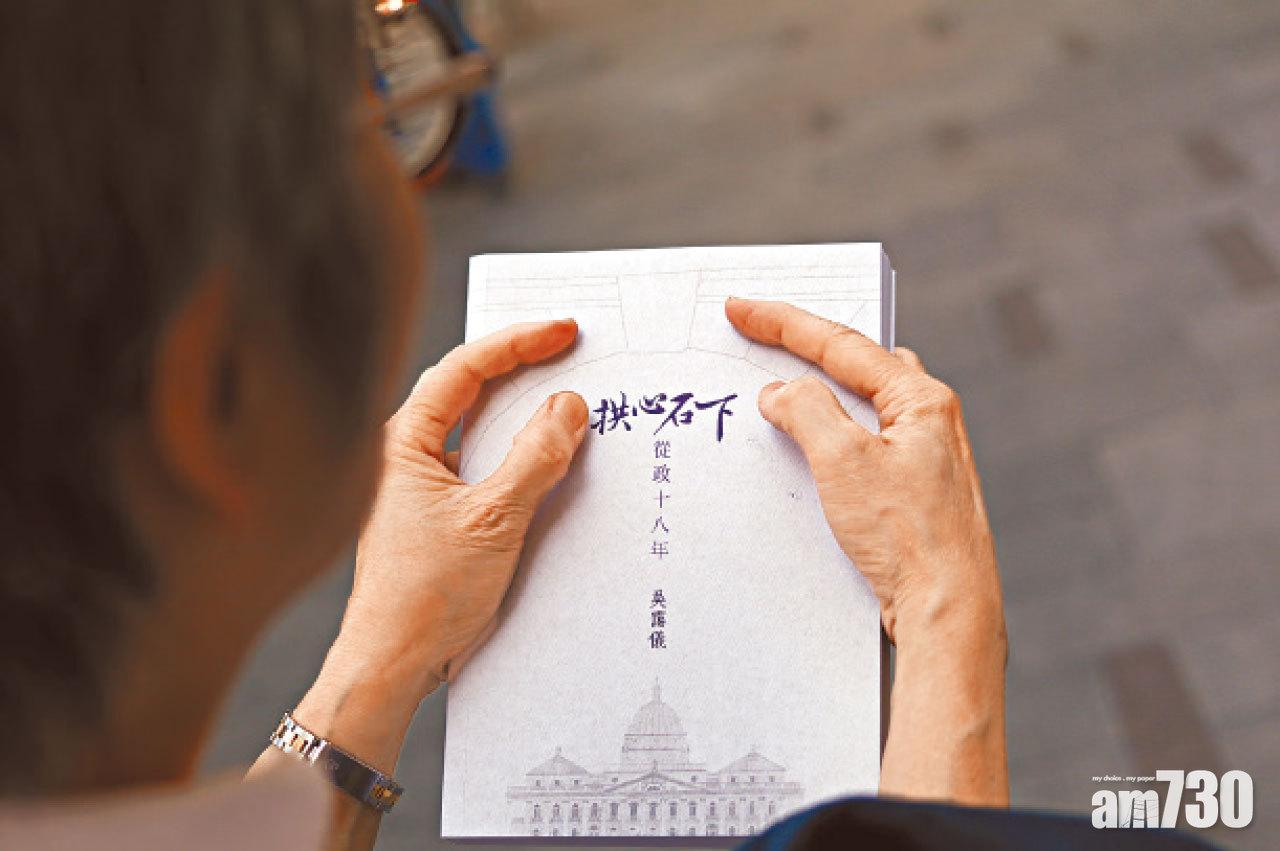 拱心石下
從政十八年
吳靄儀
my choice . my paper
am730